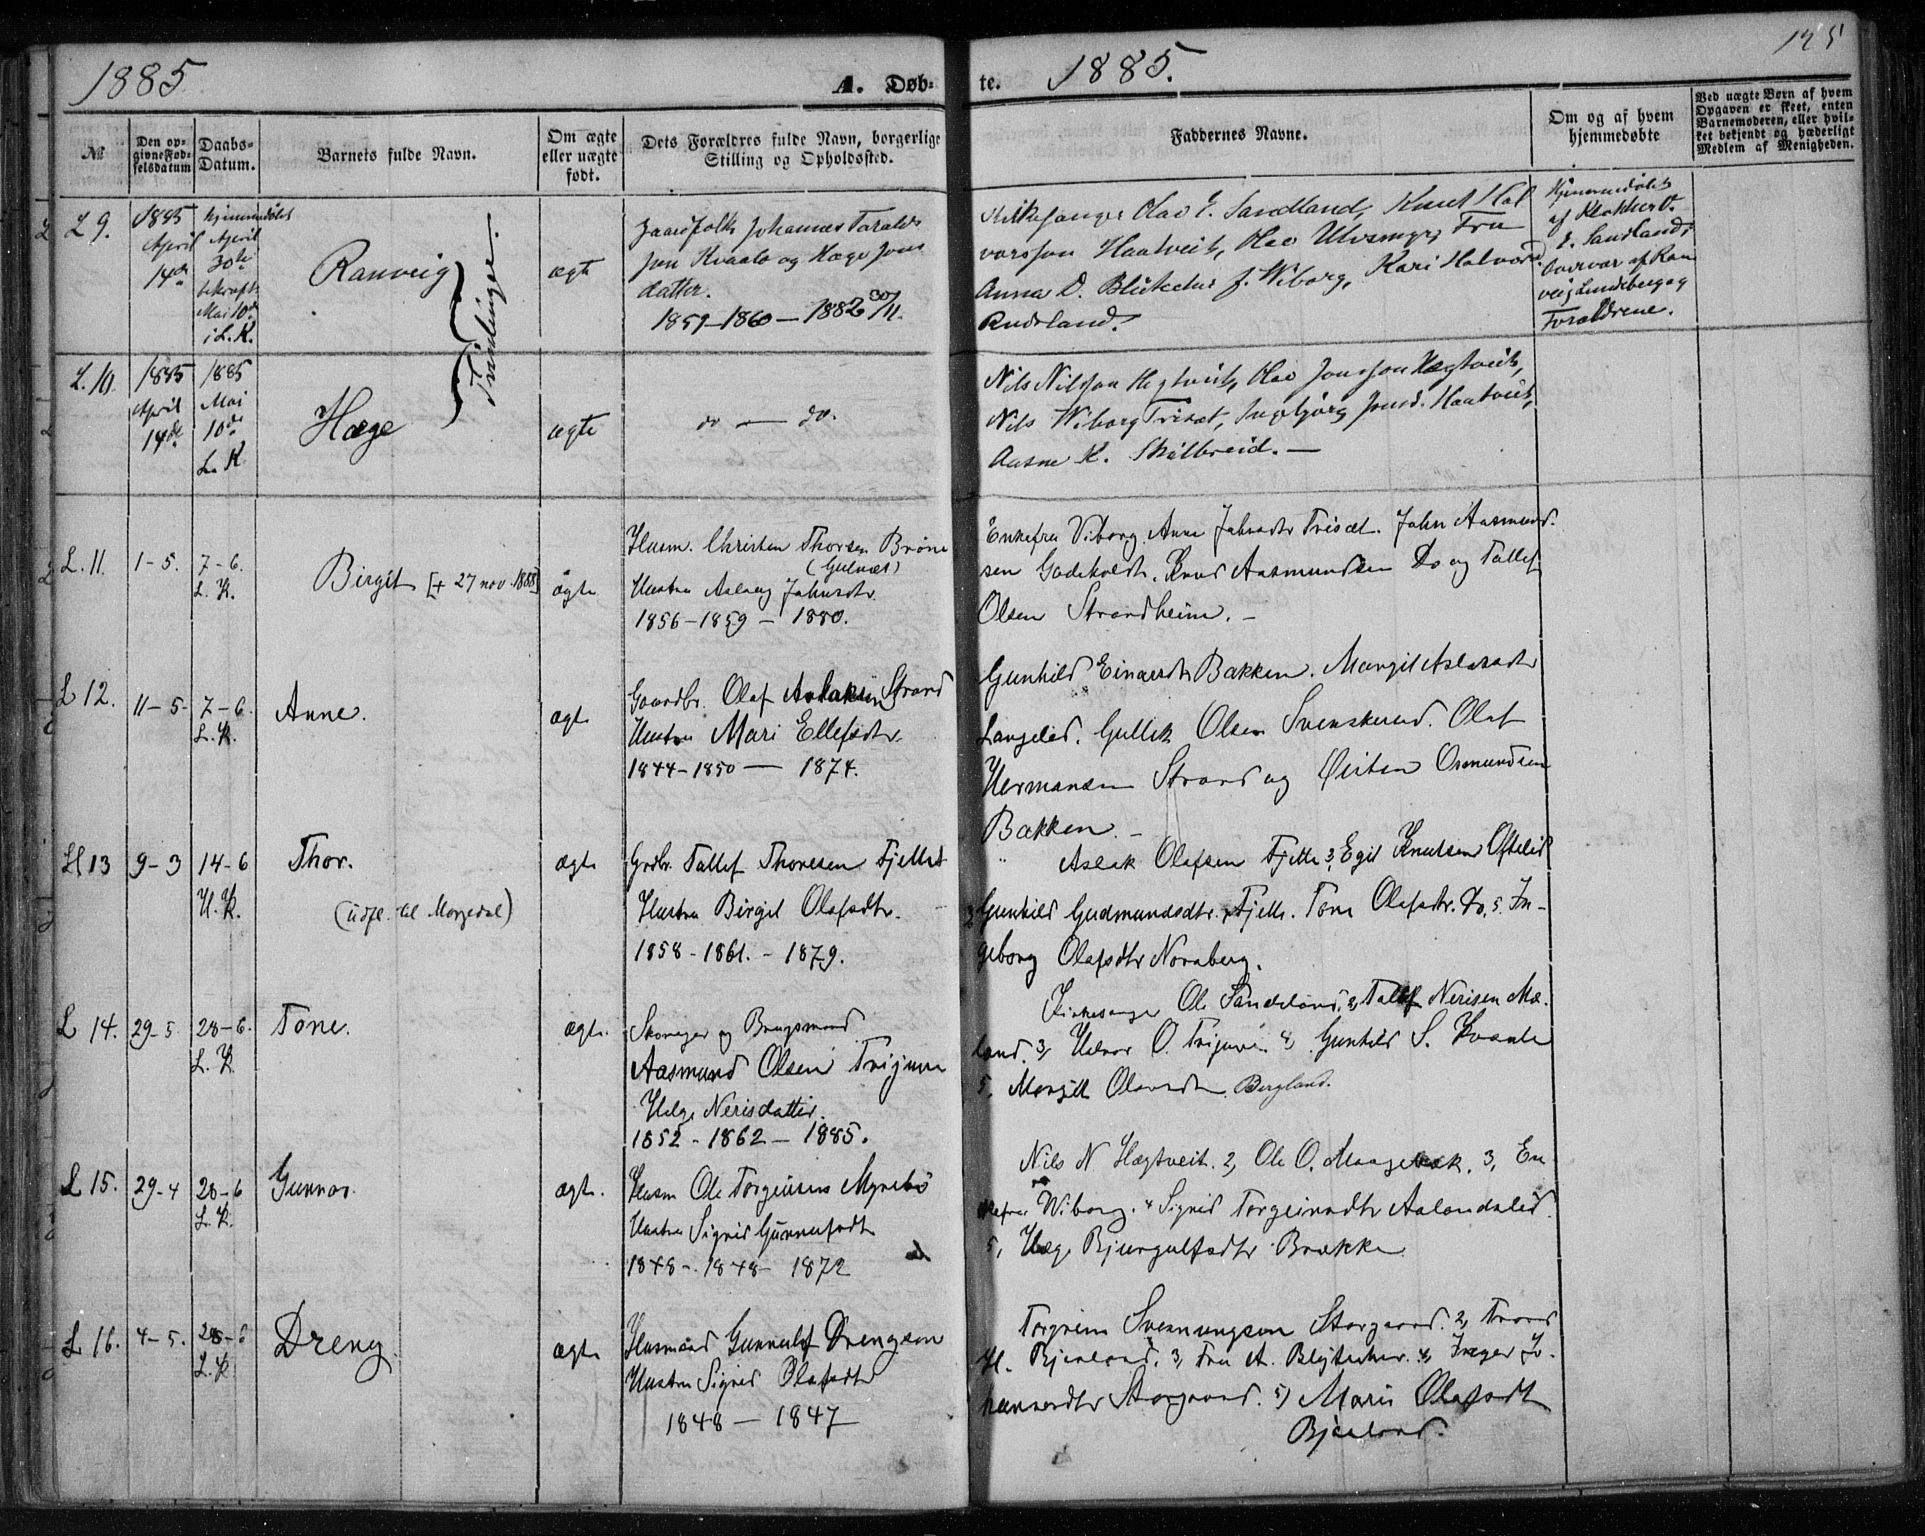 1885
A. Døb-
te.
1885.
125
№
Den op-
givne Fød-
selsdatum
Daabs-
Datum.
Barnets fulde Navn.
Om ægte
eller uægte
født.
Dets Forældres fulde Navn, borgerlige
Stilling og Opholdssted.
Faddernes Navne.
Om og af hvem
hjemmedøbte
Ved uægte Børn af hvem
Opgaven er skeet, enten
Barnemoderen, eller hvil-
ket bekjendt og hæderligt
Medlem af Menigheden.
L 9.
1885
April
14de
hjemmedøbt
April
30te
bekræft.
Mai 10de
i L. K.
Ranveig
Tvillinger.
ægte
Gaardfolk Johannes Taralds
søn Kvaale og Hæge Jons
datter.
1859-1860-1882 30/11.
Kirkesanger Olav E. Sandland, Knut Hal
vorssøn Haatveit, Olav Ulvsmyr, Fru
Anna D. Blütecher f. Wiborg, Kari Halvorsd
Rudsland.
Hjemmedøbt
af Klokker O.
E. Sandland,
overvær af Ran
veig Lundeberg og
Forældrene.
L. 10
1885
April
14de
1885
Mai
10de
L. K.
Hæge
ægte
do — do.
Nils Nilssøn Hegtveit, Olav Jonssøn Hægtveit,
Nils Wiborg Trisæt, Ingebjørg Jonsd. Haatveit,
Aasne K. Skilbreid. —
L. 11.
1-5.
7-6.
L. K.
Birgit [+ 27 nov. 1888]
ægte
Husm. Christen Thorsen Brøne
(Gulnæs)
Hustru Aslaug Jahnsdtr.
1856-1859 - 1880.
Enkefru Viborg. Anne Jahnsdtr Trisæt. Jahn Aasmund-
sen Godskoldt. Knud Aasmundsen Do og Tallef
Olsen Strandheim. —
L 12.
11-5.
7-6.
L. K.
Anne.
ægte
Gaardbr. Olaf Aslaksen Strand
Hustru Mari Ellefsdtr.
1844-1850 — 1874.
Gunhild Einarsdtr Bakken. Margit Aslaksdtr
Langelid. Gullik Olsen Svenskerud. Olaf
Hermansen Strand og Øisten Osmundsen
Bakken. —
H 13
9-3
14-6
H. K.
Thor.
(Udfl. til Morgedal)
ægte
Grdbr. Tallef Thoresen Fjelle
Hustru Birgit Olafsdtr.
1858-1861. - 1879.
Aslak Olafsen Fjelle 2, Egil Knutsen Oftelid
3, Gunhild Gudmundsdtr. Fjelle. Tone Olafsdtr. Do. 5. In-
geborg Olafsdtr Noraberg.
L 14.
29-5
28-6.
L. K.
Tone.
ægte.
Skomager og Brugsmand
Aasmund Olsen Trijuve
Helge Nerisdatter.
1852 - 1862 - 1885.
Kirkesanger Ole Sandland. 2, Tallef Nerisen Mæ-
land. 3, Halvor O. Trijuve. 4, Gunhild S. Kvaale
5, Margit Olavsdtr. Bergland.
L 15.
29-4
28-6
L. K.
Gunnar.
ægte.
Husm Ole Torgeirsen Myrebø
Hustru Sigrid Gunnufsdt
1848-1848- 1872
Nils N. Hægtveit. 2, Ole O. Maagebæk. 3, En
kefru Wiborg. 4 Sigrid Torgeirsdtr Aalandslid.
5, Hæge Bjurgulfsdtr Brække
L 16.
4-5.
28-6
L. K.
Dreng.
ægte
Husmand Gunnulf Drengson
Hustru Sigrid Olafsdtr
1848 — 1847
Torgrim Svenungsen Storgaard. 2, Trond
H. Bjaaland. 3, Fru A. Blytecher. 4, Inger Jo-
hannesdtr Storgaard. 5) Mari Olafsdt
Bjaaland.